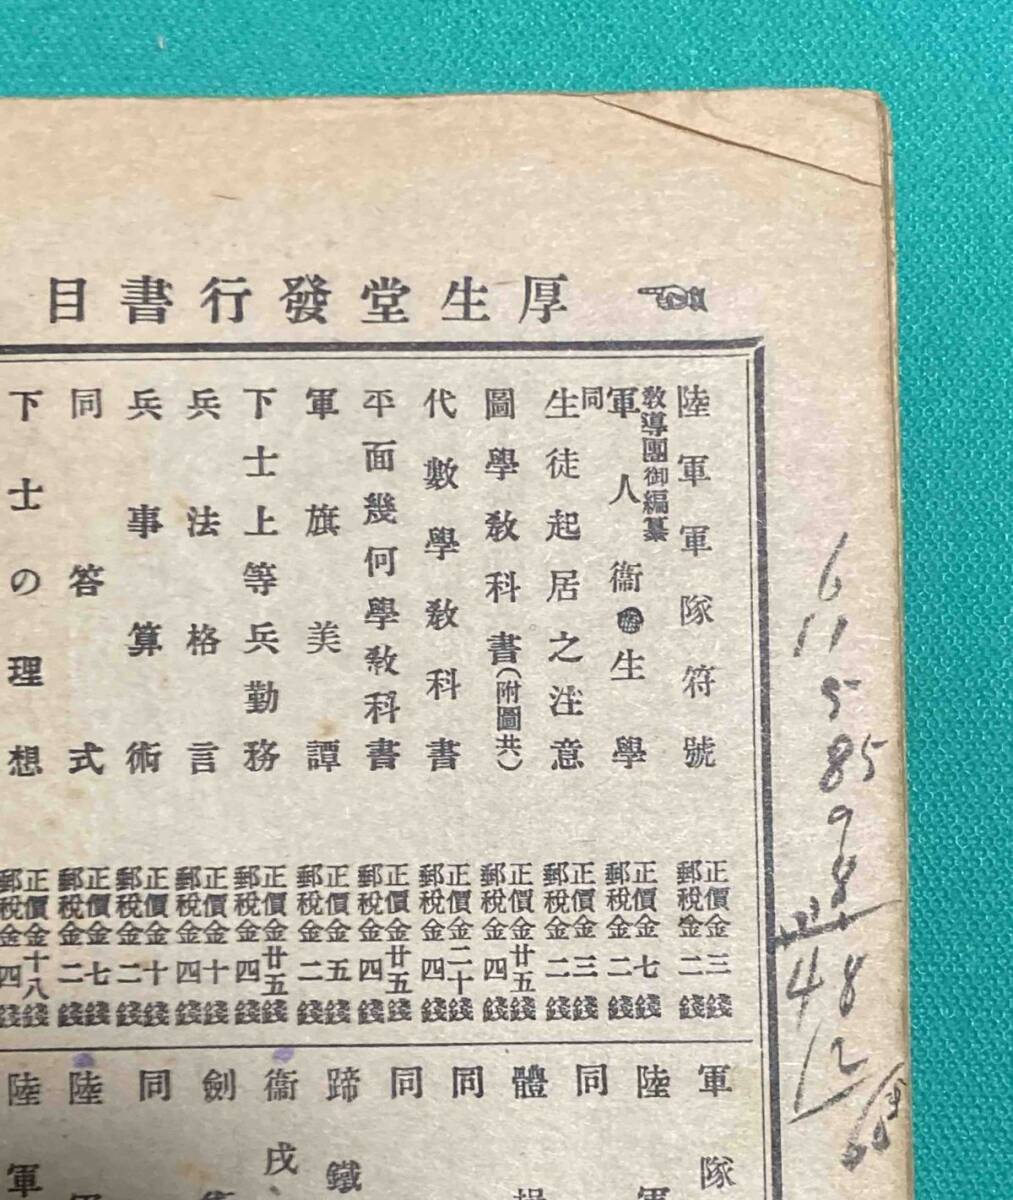 厚生堂發行書目
陸軍軍隊符號 正價金三錢 郵稅金二錢
教導團御編纂
軍人衞生學 正價金七錢 郵稅金二錢
同
生徒起居之注意 正價金三錢 郵稅金二錢
圖學教科書(附圖共) 正價金廿五錢 郵稅金四錢
代數學教科書 正價金二十錢 郵稅金四錢
平面幾何學教科書 正價金廿五錢 郵稅金四錢
軍旗美譚 正價金五錢 郵稅金二錢
下士上等兵勤務 正價金廿五錢 郵稅金四錢
兵法格言 正價金十錢 郵稅金四錢
兵事算術 正價金十錢 郵稅金二錢
同答式 正價金七錢 郵稅金二錢
下士の理想 正價金十八錢 郵稅金四錢
軍隊
陸軍
同
體操
同
同
蹄鐵
衞戍
劍
同
陸
陸軍
6
11
5
85
9
8
48
12